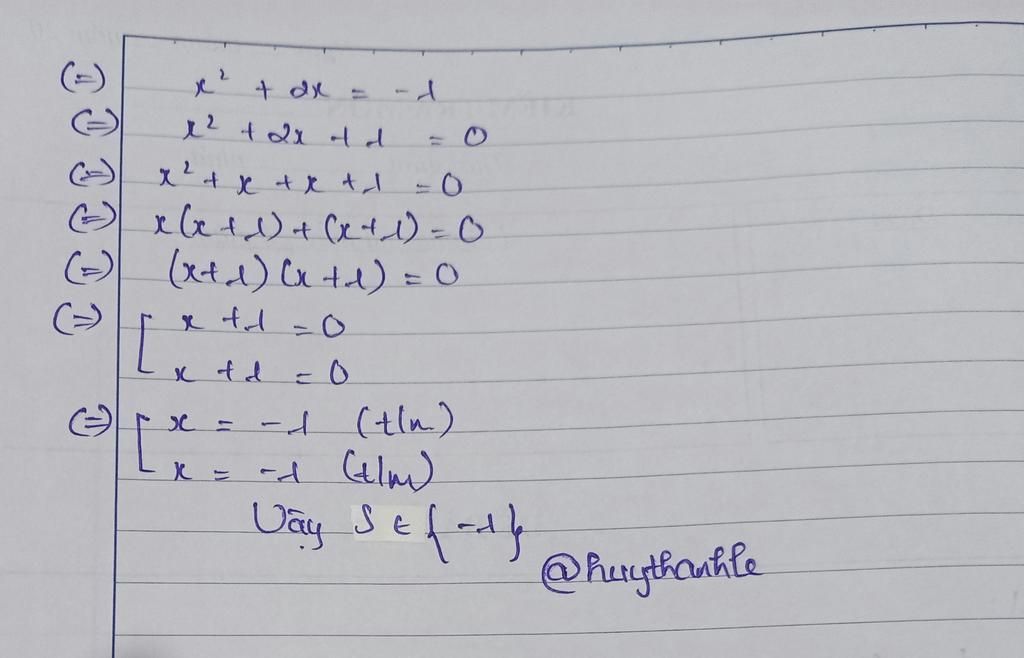 (=) x² + 2x = -1
(=) x² + 2x + 1 = 0
(=) x² + x + x + 1 = 0
(=) x(x+1) + (x+1) = 0
(=) (x+1)(x+1) = 0
(=) [ x + 1 = 0
x + 1 = 0
(=) [ x = -1 (t/m)
x = -1 (t/m)
Vậy S ∈ {-1}
@huythanhle